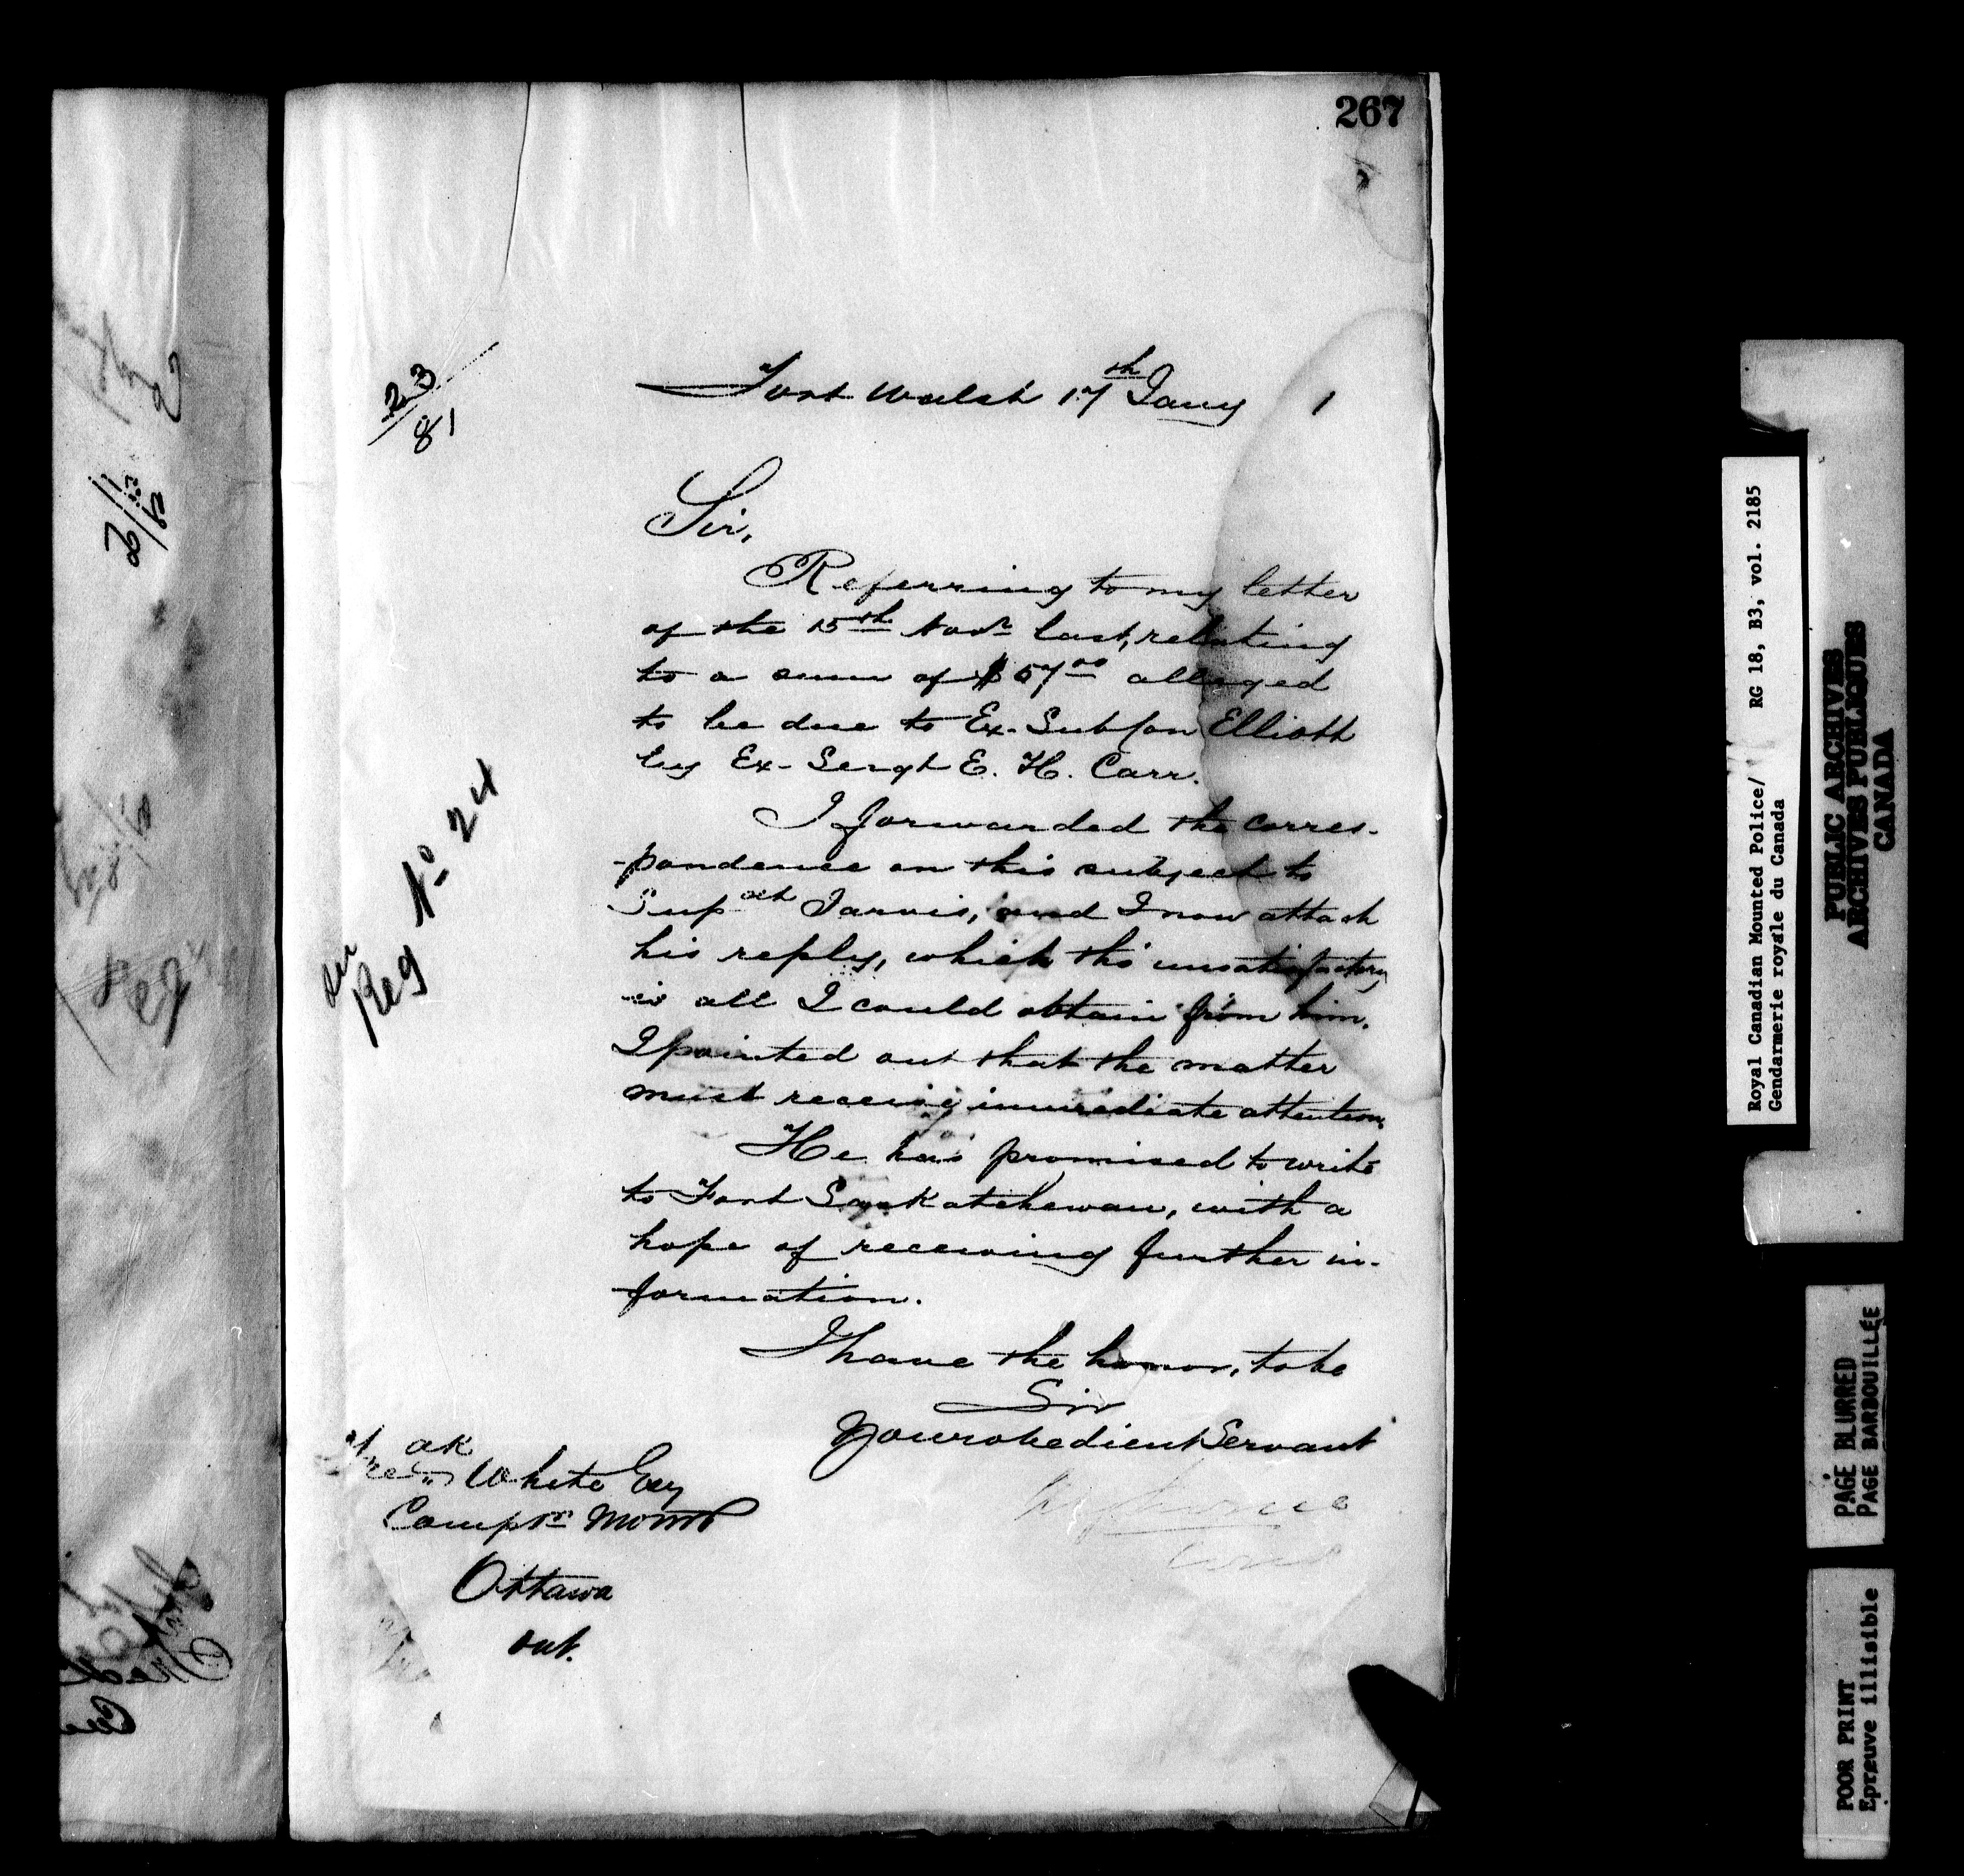 267
23/81
Fort Walsh 17th Jany 1
Sir,
Referring to my letter
of the 15th Novr last, relating
to a sum of $57.00 alleged
to be due to Ex-Sub/Con Elliott
by Ex-Sergt E. H. Carr.
I forwarded the corres-
-pondence on this subject to
Supdt Jarvis, and I now attach
his reply, which tho' unsatisfactory
is all I could obtain from him.
I pointed out that the matter
must receive immediate attention.
He has promised to write
to Fort Saskatchewan, with a
hope of receiving further in-
-formation.
I have the honor, to be
Sir
Your obedient Servant
Reg No 24
White Esq
Ottawa
Ont.
Royal Canadian Mounted Police/ RG 18, B3, vol. 2185
Gendarmerie royale du Canada
PUBLIC ARCHIVES
ARCHIVES PUBLIQUES
CANADA
PAGE BLURRED
PAGE BARBOUILLÉE
POOR PRINT
Epreuve illisible